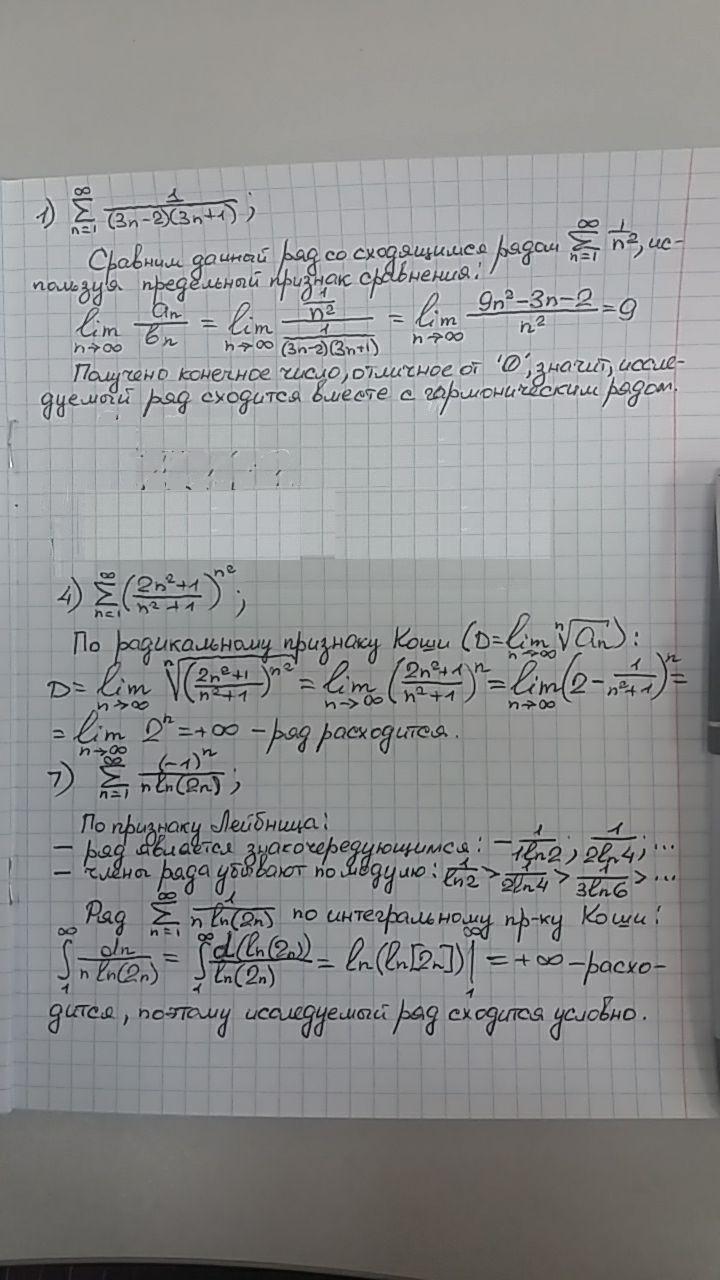 1) ∑_{n=1}^{∞} 1/((3n-2)(3n+1));
Сравним данный ряд со сходящимся рядом ∑_{n=1}^{∞} 1/n², ис-
пользуя предельный признак сравнения:
lim_{n→∞} aₙ/bₙ = lim_{n→∞} (1/n²)/(1/((3n-2)(3n+1))) = lim_{n→∞} (9n²-3n-2)/n² = 9
Получено конечное число, отличное от '0', значит, иссле-
дуемый ряд сходится вместе с гармоническим рядом.
4) ∑_{n=1}^{∞} ((2n²+1)/(n²+1))^{n²};
По радикальному признаку Коши (D=lim_{n→∞} ⁿ√(aₙ)):
D = lim_{n→∞} ⁿ√(((2n²+1)/(n²+1))^{n²}) = lim_{n→∞} ((2n²+1)/(n²+1))^n = lim_{n→∞} (2 - 1/(n²+1))^n =
= lim_{n→∞} 2^n = +∞ - ряд расходится.
7) ∑_{n=1}^{∞} (-1)^n/(n ln(2n));
По признаку Лейбница:
- ряд является знакочередующимся: -1/(1ln2); 1/(2ln4); ...
- члены ряда убывают по модулю: 1/ln2 > 1/(2ln4) > 1/(3ln6) > ...
Ряд ∑_{n=1}^{∞} 1/(n ln(2n)) по интегральному пр-ку Коши:
∫_1^∞ dn/(n ln(2n)) = ∫_1^∞ d(ln(2n))/ln(2n) = ln(ln[2n])|_1^∞ = +∞ - расхо-
дится, поэтому исследуемый ряд сходится условно.